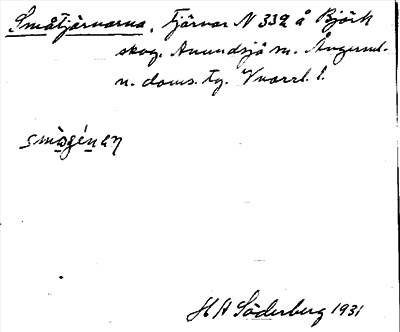 Småtjärnarna, Tjärnar N 332 å Björk
skog. Anundsjö sn. Ångerml.
n. doms. tg. Vnorrl. l.
smȧgénaɳ
H A Söderberg 1931